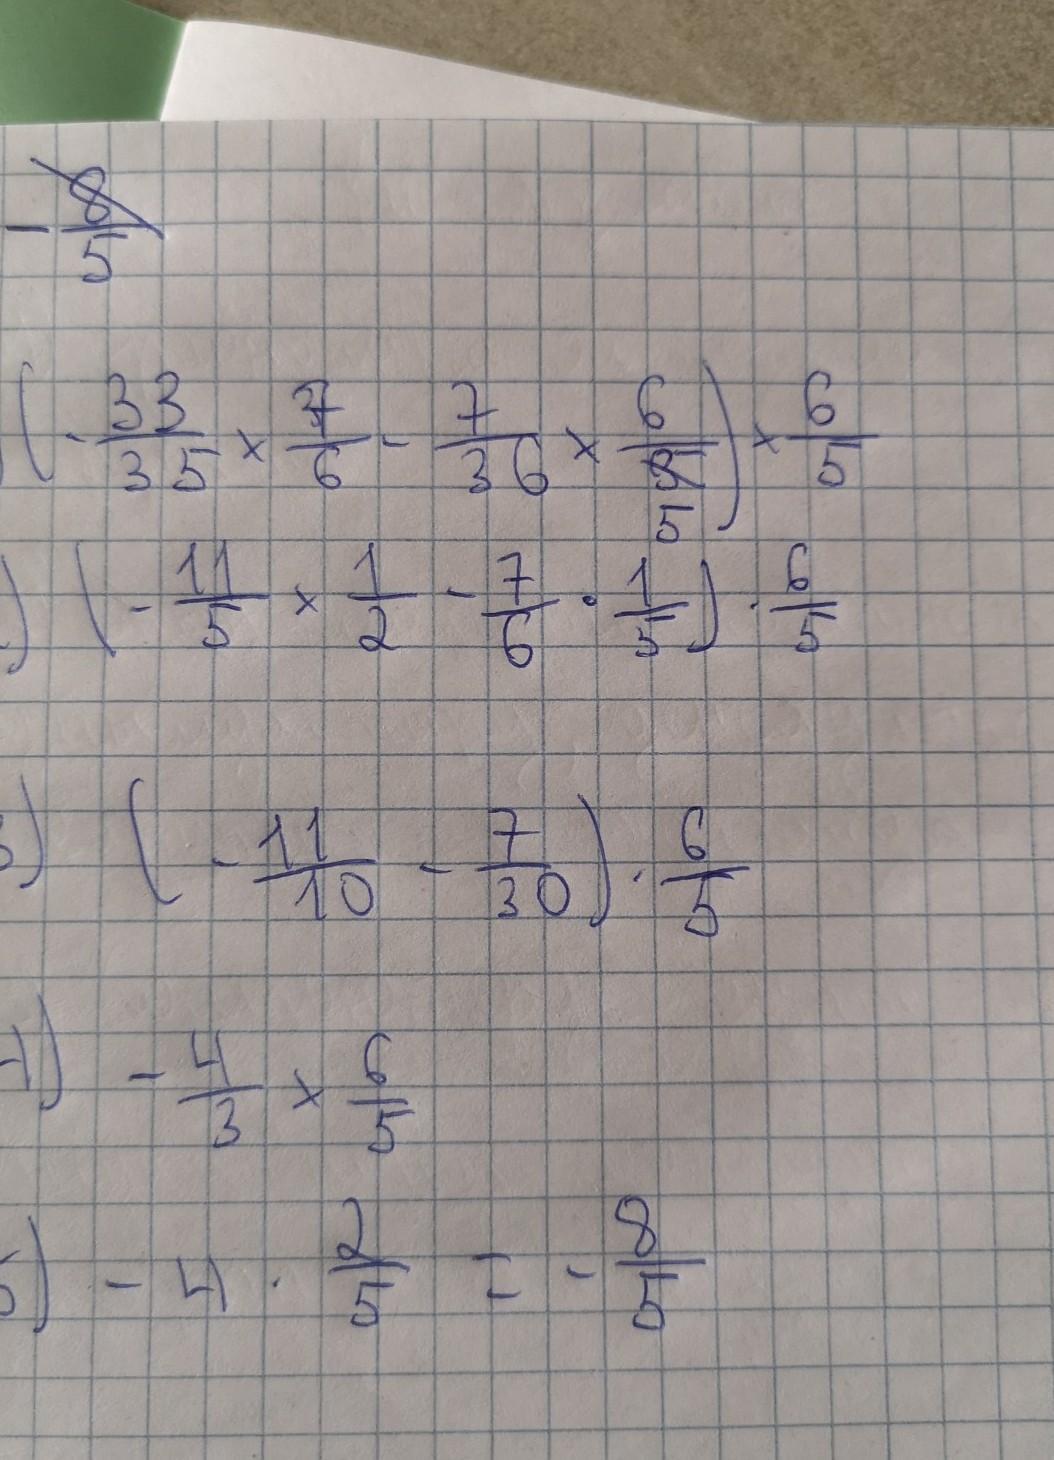 - 8/5
(- 33/35 × 7/6 - 7/36 × 6/5) × 6/5
) (- 11/5 × 1/2 - 7/6 · 1/5) · 6/5
3) (- 11/10 - 7/30) · 6/5
4) - 4/3 × 6/5
5) - 4 · 2/5 = - 8/5